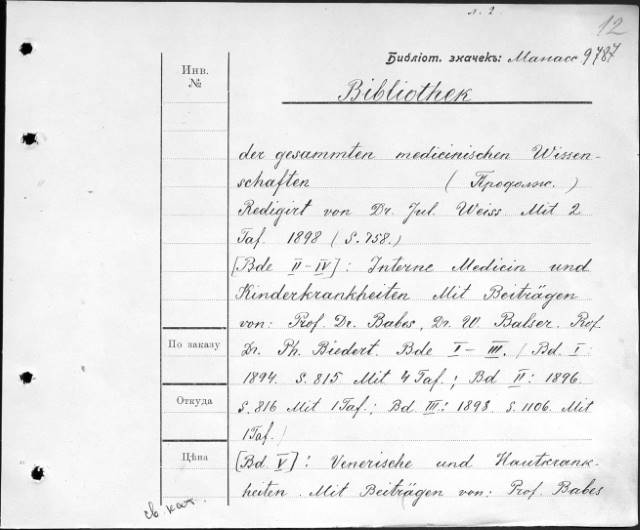 л. 2.
12
Библіот. значекъ: Манасс 9787
Инв.
№
Bibliothek
der gesammten medicinischen Wissen-
schaften ( Продолж. )
Redigirt von Dr. Jul. Weiss Mit 2
Taf. 1898 ( S. 758.)
[Bde II-IV]: Interne Medicin und
Kinderkrankheiten Mit Beiträgen
von: Prof. Dr. Babes, Dr. W. Balser. Prof.
По заказу
Dr. Ph. Biedert. Bde I-III. / Bd. I:
1894. S. 815 Mit 4 Taf.; Bd II: 1896.
Откуда
S. 816 Mit 1 Taf.; Bd. III: 1898. S. 1106. Mit
1 Taf. /
Цѣна
[Bd. V]: Venerische und Hautkrank-
heiten. Mit Beiträgen von: Prof. Babes
св. кат.